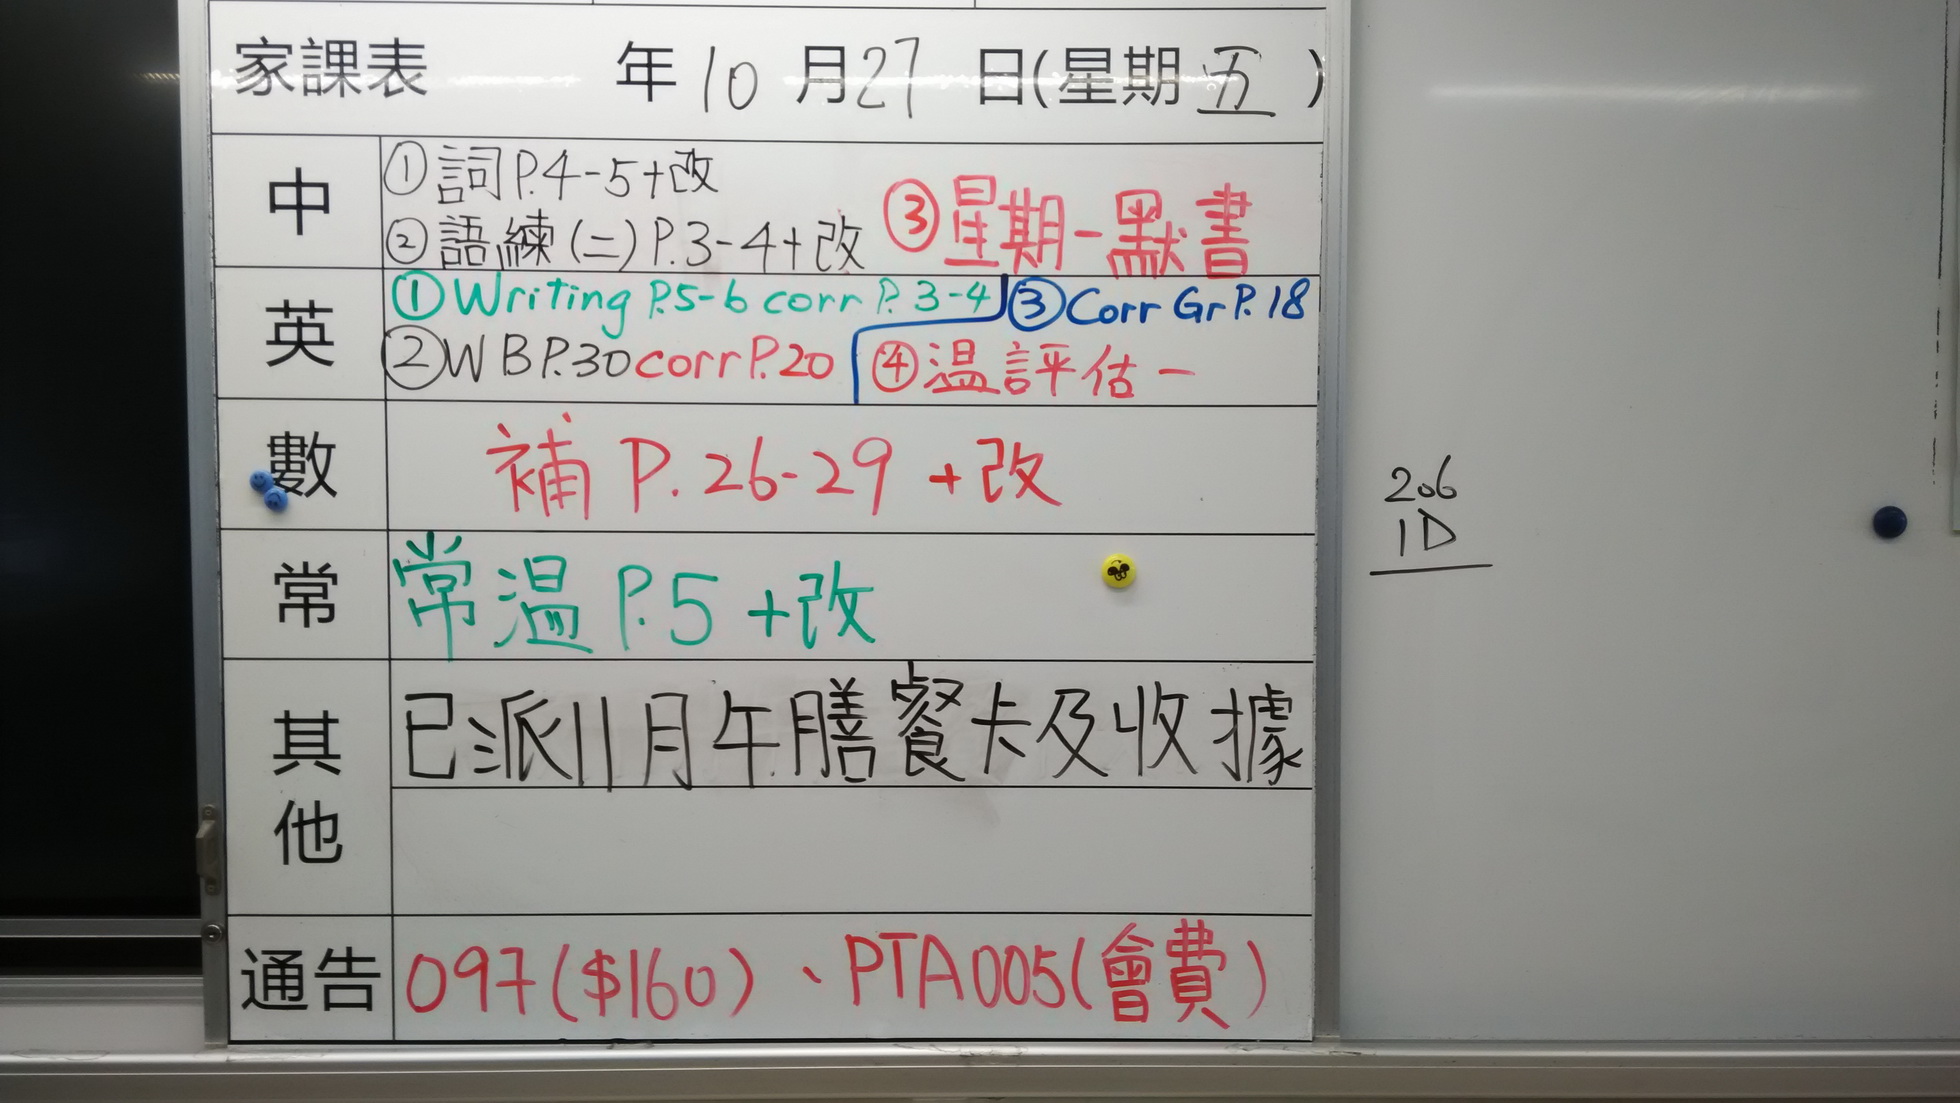 家課表 年10月27日(星期五)
中
①詞P.4-5+改
②語練(二)P.3-4+改
③星期一默書
英
①Writing P.5-6 corr P.3-4
③Corr Gr P.18
②WB P.30 corr P.20
④温評估一
數
補 P.26-29 +改
常
常温 P.5 +改
其他
已派11月午膳餐卡及收據
通告
097($160)、PTA005(會費)
206
1D